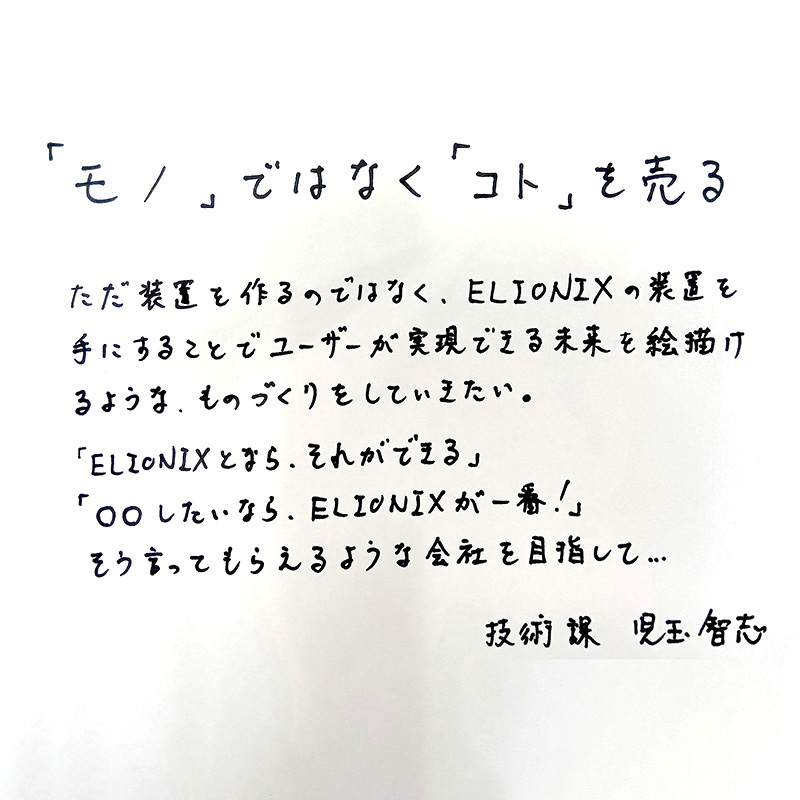 「モノ」ではなく「コト」を売る
ただ装置を作るのではなく、ELIONIXの装置を
手にすることでユーザーが実現できる未来を絵描け
るような、ものづくりをしていきたい。
「ELIONIXとなら、それができる」
「○○したいなら、ELIONIXが一番!」
そう言ってもらえるような会社を目指して…
技術課 児玉智志